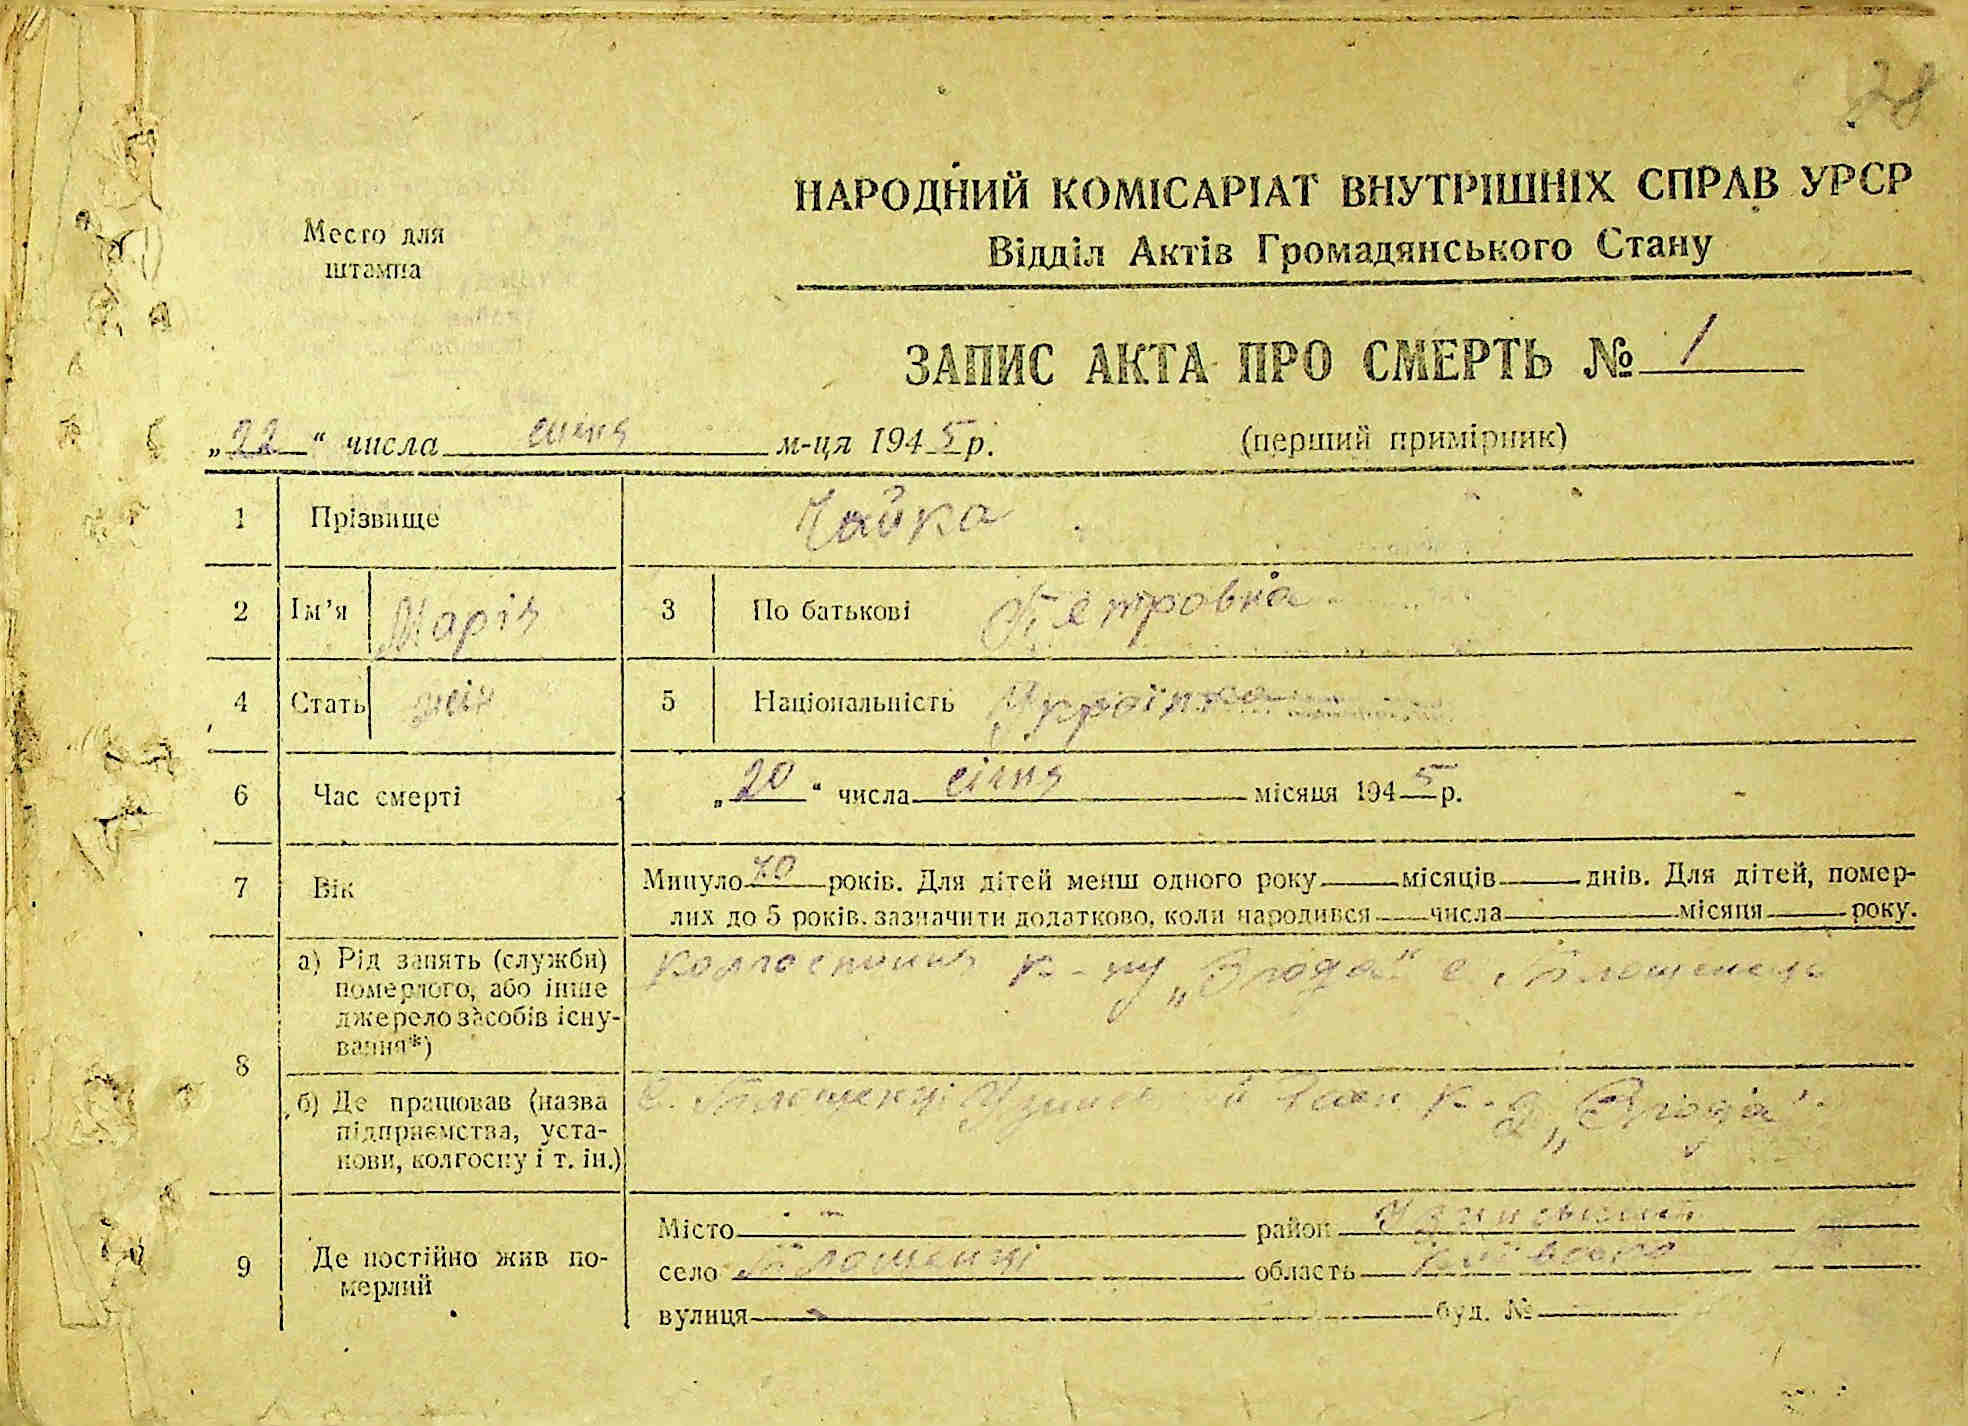 28
НАРОДНИЙ КОМІСАРІАТ ВНУТРІШНІХ СПРАВ УРСР
Место для
штампа
Відділ Актів Громадянського Стану
ЗАПИС АКТА ПРО СМЕРТЬ № 1
„22“ числа січня м-ця 1945 р.
(перший примірник)
1 Прізвище Чайка
2 Ім’я Марія 3 По батькові Петровна
4 Стать жін 5 Національність Українка
6 Час смерті „20“ числа січня місяця 1945 р.
7 Вік Минуло 70 років. Для дітей менш одного року місяців днів. Для дітей, помер-
лих до 5 років, зазначити додатково, коли народився числа місяця року.
8 а) Рід занять (служби)
померлого, або інше
джерело засобів існу-
вання*)
колгоспниця к-пу „Згода“ с.
б) Де працював (назва
підприємства, уста-
нови, колгоспу і т. ін.)
с. к-п „Згода“
9 Де постійно жив по-
мерлий
Місто - район Узинський
село область Київська
вулиця - буд. №